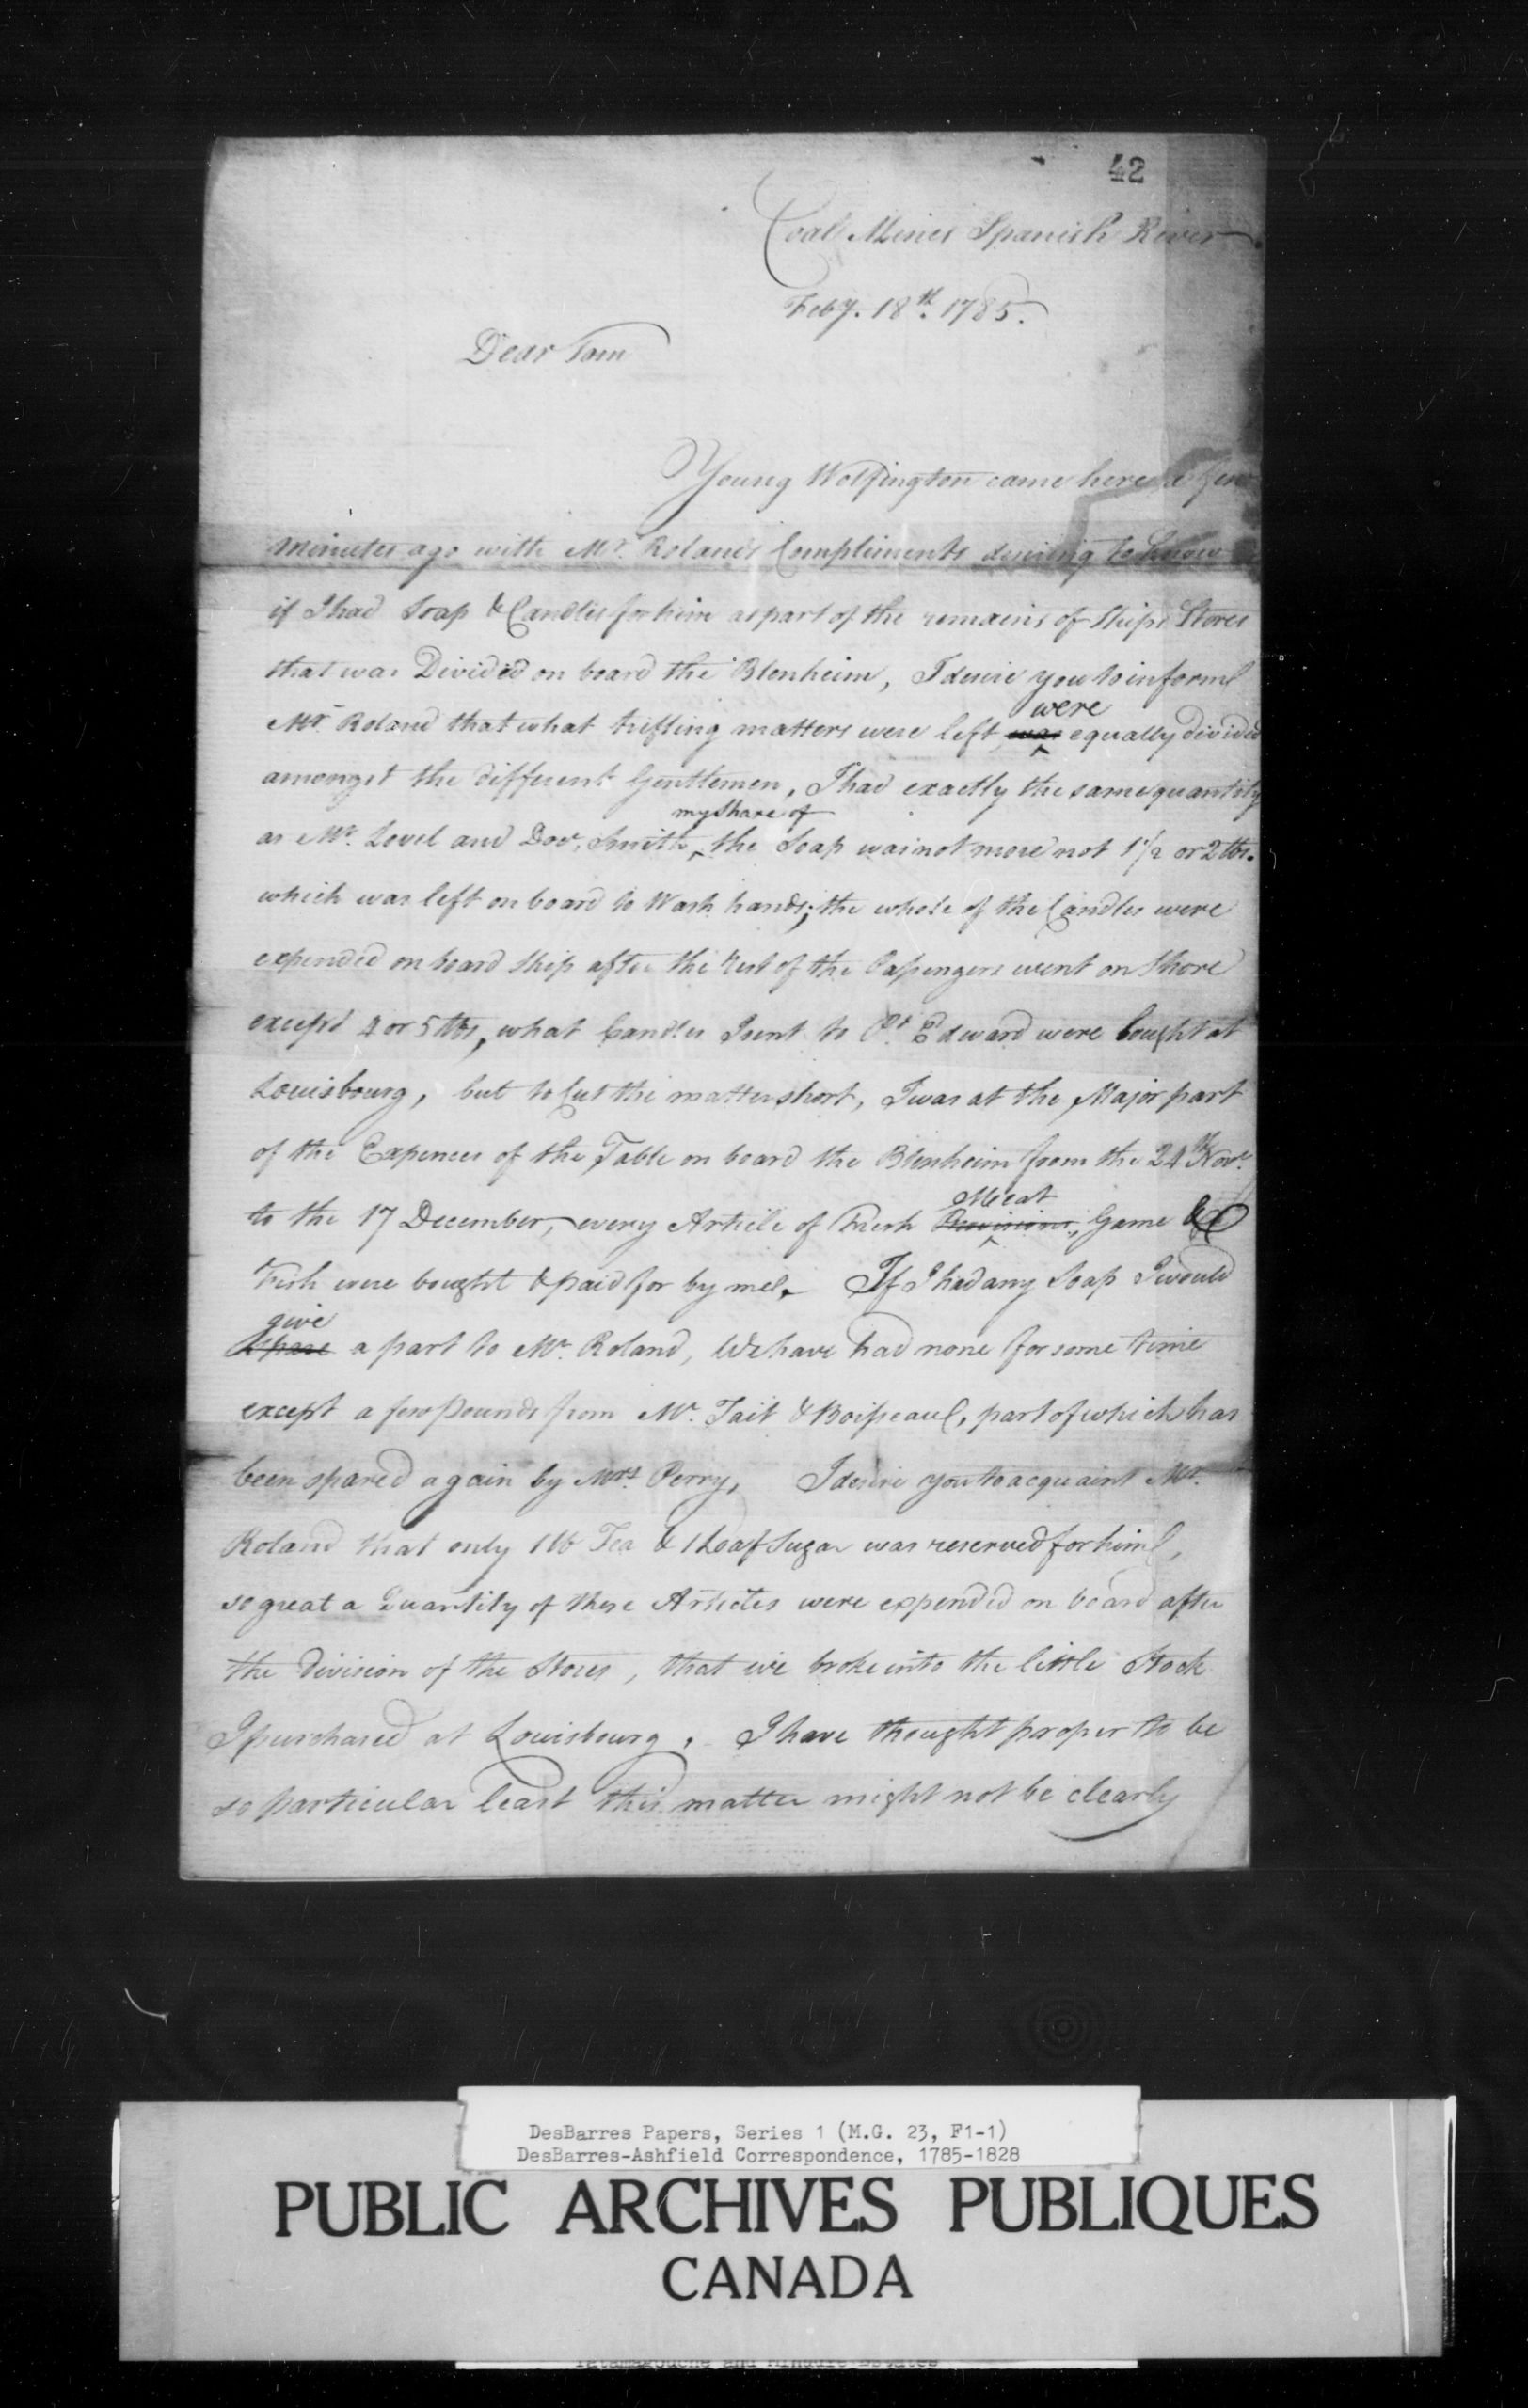 42
Coal Mines Spanish River
Feby. 18th. 1785.
Dear Tom
Young Wolfington came here a few
minutes ago with Mr. Roland's Compliments desiring to know
if I had Soap & Candles for him as part of the remains of Ships Stores
that was Divided on board the Blenheim, I desire you to inform
were
Mr. Roland that what trifling matters were left was equally divided
amongst the different Gentlemen, I had exactly the same quantity
my Share of
as Mr. Lovel and Docr. Smith, the Soap was not more not 1 1/2 or 2 lbs.
which was left on board to Wash hands; the whole of the Candles were
expended on board Ship after the rest of the Passengers went on Shore
except 4 or 5 lbs, what Candles I sent to Pt. Edward were bought at
Louisbourg, but to Cut the matter short, I was at the Major part
of the Expences of the Table on board the Blenheim from the 24th Novr.
Meat
to the 17 December, every Article of Fresh Provisions, Game &
Fish were bought & paid for by me. If I had any Soap I would
give
spare a part to Mr. Roland, We have had none for some time
except a few Pounds from Mr. Tait & Boisseau, part of which has
been spared again by Mrs. Perry, I desire you to acquaint Mr.
Roland that only 1 lb Tea & 1 Loaf Sugar was reserved for him,
so great a Quantity of these Articles were expended on board after
the division of the Stores, that we broke into the little Stock
I purchased at Louisbourg. I have thought proper to be
so particular least this matter might not be clearly
DesBarres Papers, Series 1 (M.G. 23, F1-1)
DesBarres-Ashfield Correspondence, 1785-1828
PUBLIC ARCHIVES PUBLIQUES
CANADA
Tatamagouche and Minudie Estates